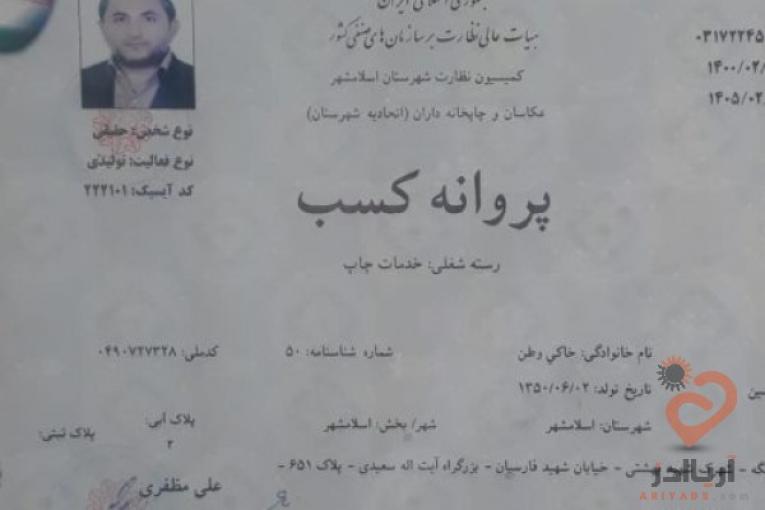 جمهوری اسلامی ایران
هیات عالی نظارت بر سازمان های صنفی کشور
کمیسیون نظارت شهرستان اسلامشهر
عکاسان و چاپخانه داران (اتحادیه شهرستان)
۰۳۱۷۲۲۴۵
۱۴۰۰/۰۲/
۱۴۰۵/۰۲/
نوع شخص: حقیقی
نوع فعالیت: تولیدی
کد آیسیک: ۲۲۲۱۰۱
پروانه کسب
رسته شغلی: خدمات چاپ
نام خانوادگی: خاکي وطن شماره شناسنامه: ۵۰ کدملی: ۰۴۹۰۷۲۷۳۲۸
تاریخ تولد: ۱۳۵۰/۰۶/۰۲
شهرستان: اسلامشهر شهر/ بخش: اسلامشهر پلاک آبی: ۲ پلاک ثبتی:
شهرک شهید بهشتی - خیابان شهید فارسیان - بزرگراه آیت اله سعیدی - پلاک ۶۵۱ -
علی مظفری
آریاادز
ARIYADS.com